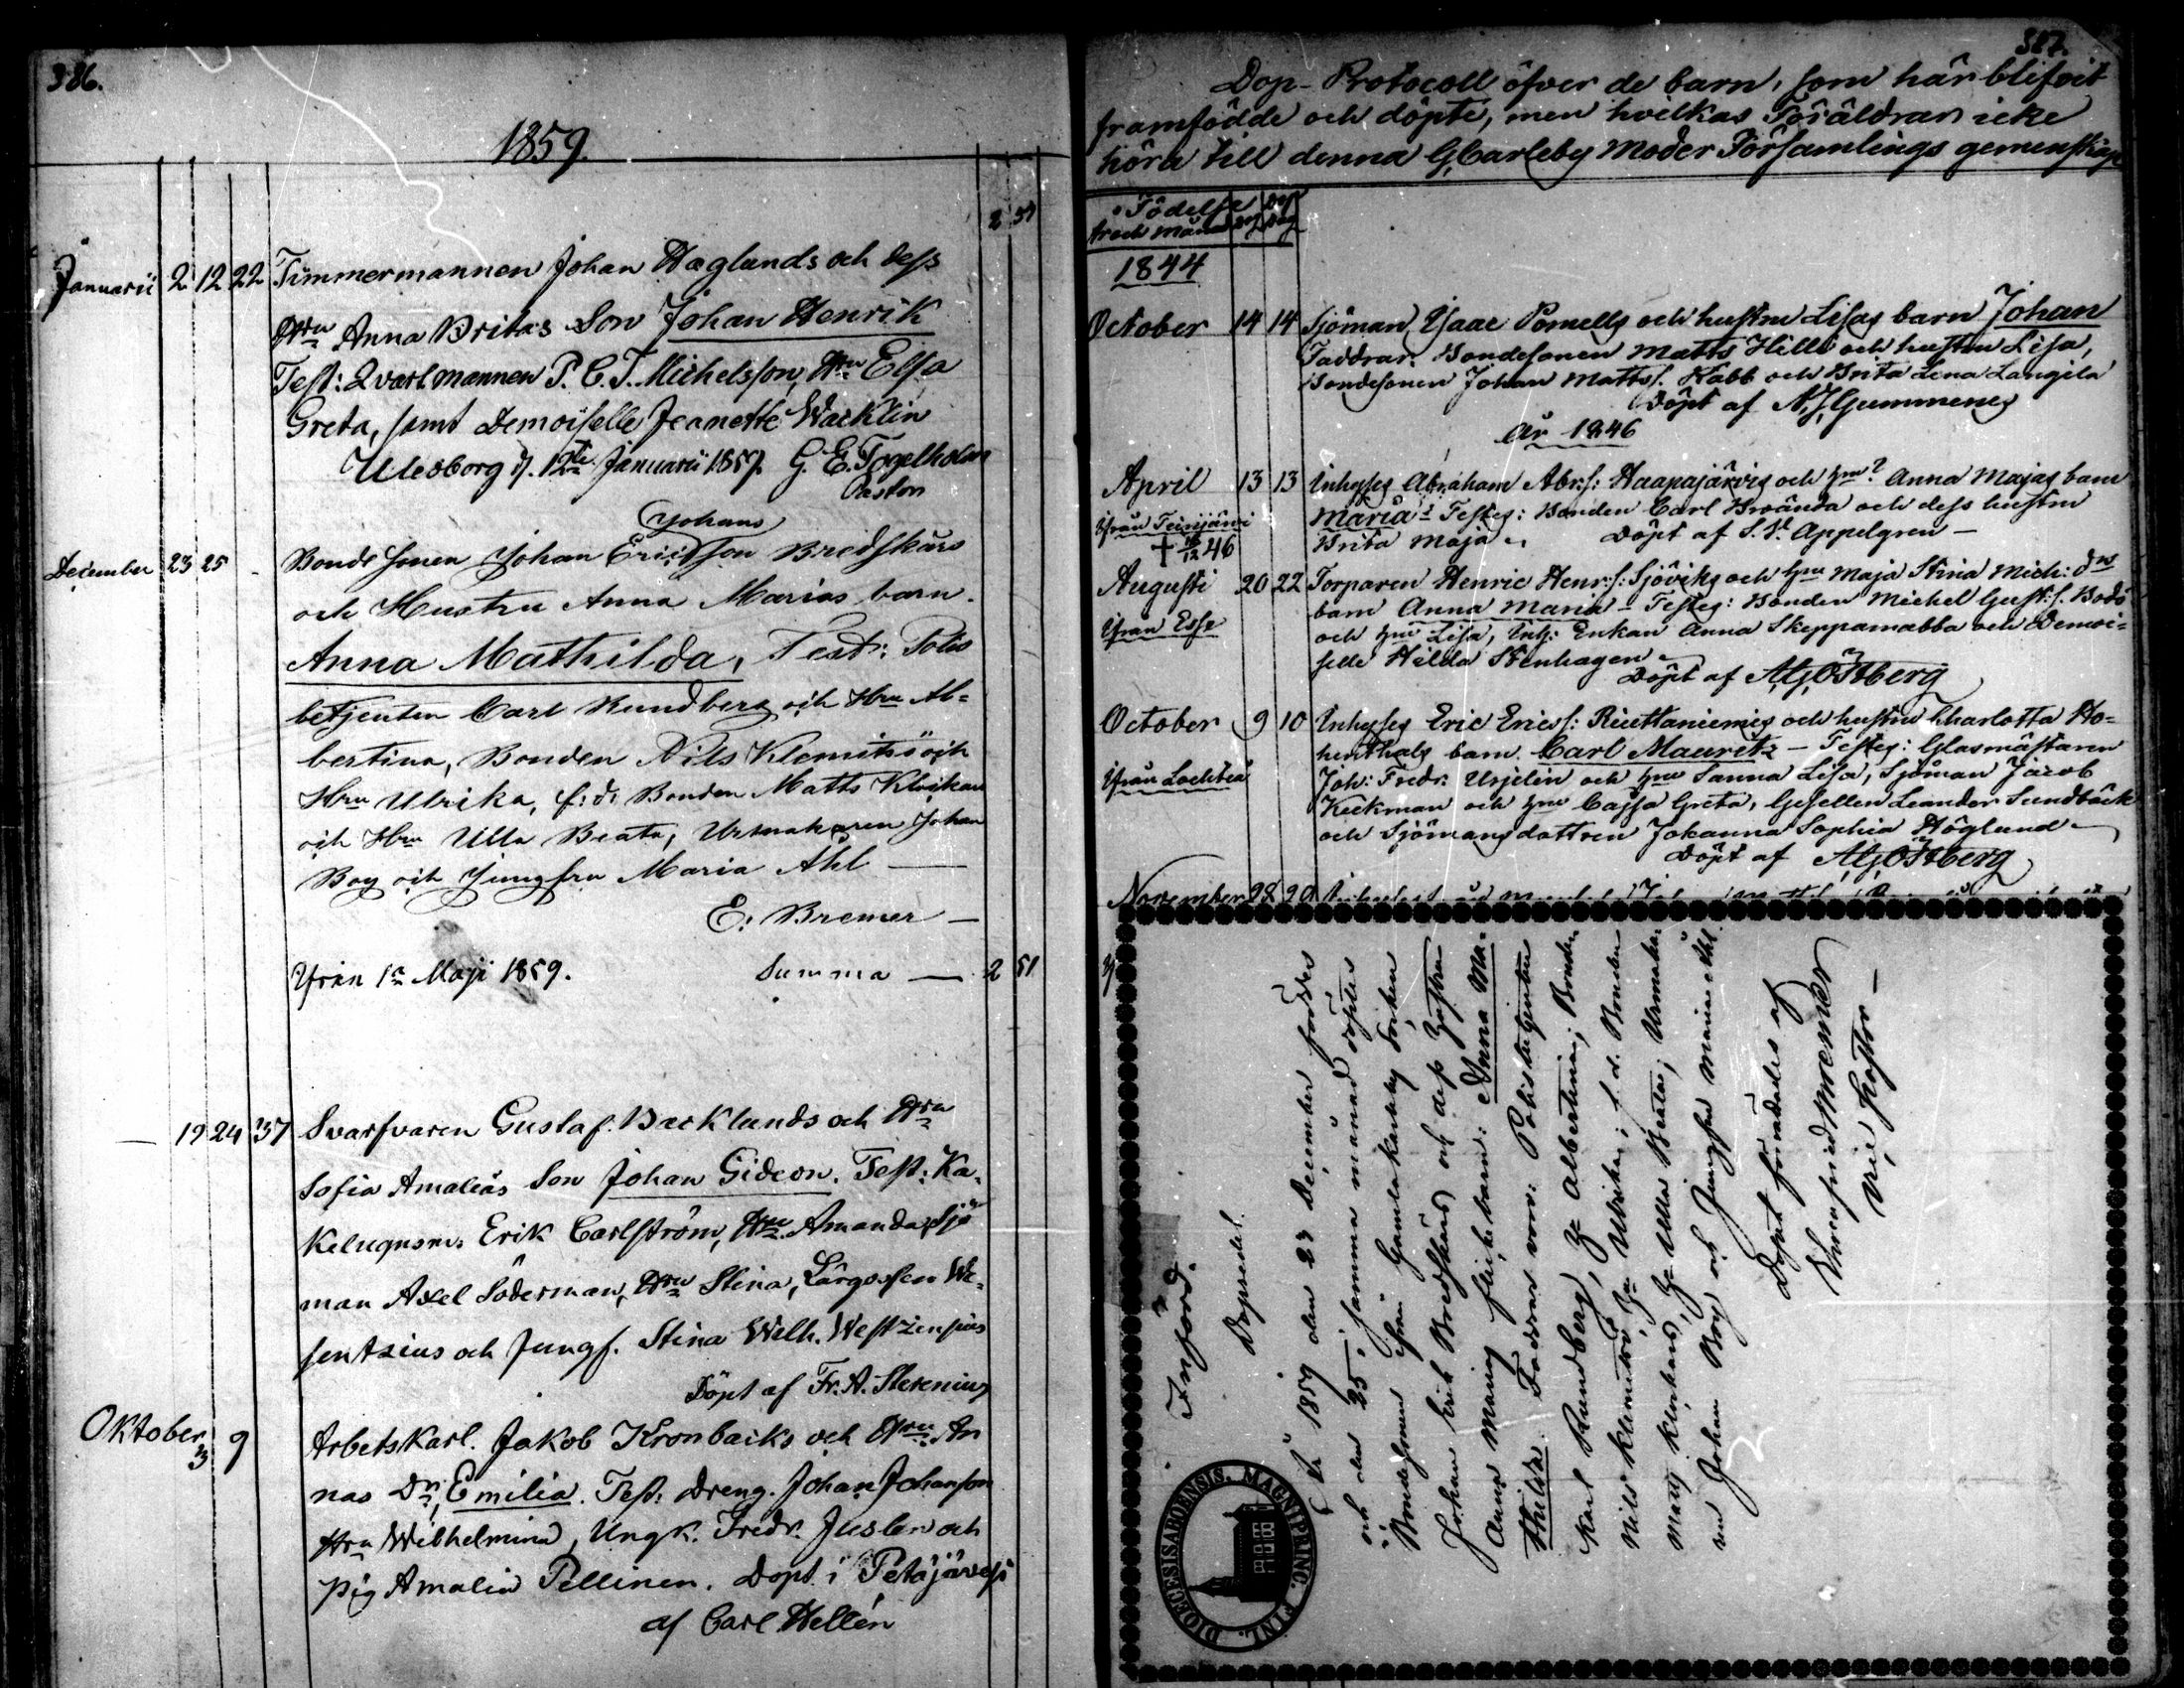 386.
1859.
2 51
Januarii 2 12 22 Timmermannen Johan Haglunds och dess
Hru Anna Britas Son Johan Henrik
Test: Qvartmannen P. C. T. Michelsson, Hru Elsa
Greta, samt Demoiselle Jeanette Wacklin
Uleåborg d. 1ste Januarii 1857. G. E. Fogelholm
Pastor
Johans
December 23 25 Bonde Sonen Johan Ericsson Bredskärs
och Hustru Anna Marias barn.
Anna Mathilda, Test: Polis
betjenten Carl Rundberg och Hru Al=
bertina, Bonden Nils Klemitsö och
Hru Ulrika, f: d: Bonden Matts
och Hru Ulla Beata, Urmakaren Johan
Boy och Jungfru Maria Ahl —
E: Bremer —
Ifrån 1a Maji 1859. Summa — 2 51
— 19 24 37 Svarfvaren Gustaf Backlunds och Hru
Sofia Amaliäs Son Johan Gideon. Test: Ka-
kelugnsm. Erik Carlström, Hru Amanda, Sjö
man Axel Söderman, Hru Stina, We-
sentzius och Jungf. Stina Welh. Westzensius
Döpt af Fr. A. Stenius
Oktober 3 9 Arbets Karl. Jakob Kronbacks och Hru An
nas Dr, Emilia. Test: dreng. Johan Johansson
Hru Wilhelmina, Ungk. Fredr. Juslen och
pig Amalia Pellinen. Döpt i Petäjävesi
af Carl Hellén
387.
Dop-Protocoll öfver de barn, som här blifvit
framfödde och döpte, men hvilkas Föräldrar icke
höra till denna GCarleby Moder Församlings gemenskap
Födelse Dop
år och månad dag dag
1844
October 14 14 Sjöman Isaac Pornells och hustru Lisas barn Johan
Faddrar. Bondesonen Matts Hilli och hustru Lisa,
Bondesonen Johan Matts s. Kabb och Brita Lena Långila
Döpt af N. J. Gummenes
År 1846
April 13 13 Inhyses Abraham Abr: s: Haapajärvis och Hru Anna Majas barn
ifrån Teirijärvi Maria: Testes: Bonden Carl Broända och dess hustru
† 46 Brita Maja. Döpt af S. V. Appelgren —
Augusti 20 22 Torparen Henric Henr: s: Sjöviks och Hru Maja Stina Mich: drs
barn Anna Maria — Testes: Bonden Michel Gust: s. Bodö
ifrån Esse och Hru Lisa, Inh: Enkan Anna Skepparnabba och Demoi=
selle Hilda Stenhagen
Döpt af A. G. Östberg
October 9 10 Inhyses Eric Erics: Riuttaniemis och hustru Charlotta Ho=
henthals barn. Carl Mauritz — Testes: Glasmästaren
ifrån Lochteå Joh: Fredr: Usjelin och Hru Sanna Lisa, Sjöman Jacob
Keckman och Hru Cajsa Greta, Gesellen Leander Sundbäck
och Sjömansdottren Johanna Sophia Höglund
Döpt af A. G. Östberg
November 28 29
Införd.
Dopsedel.
År 1859 den 23 December föddes
och den 25, samma månad döptes
Bondesonen ifrån Gamlakarleby Socken
Johan Erik Bredskärs och dess Hustru
Anna Marias flicke barn: Anna Ma-
thilda. Faddrar voro: Polisbetjenten
Karl Rundberg, H Albertina; Bonden
Nils Klemitsö, Hu Ulrika; f. d. Bonden
Matts, H Ulla Beata; Urmaka-
ren Johan Boy och Jungfru Maria Ahl.
Dopet förrättades af
Ehrenfried Bremer
Vice Pastor —
DIOECESIS ABOENSIS. MAGNI PRINC. FINL.